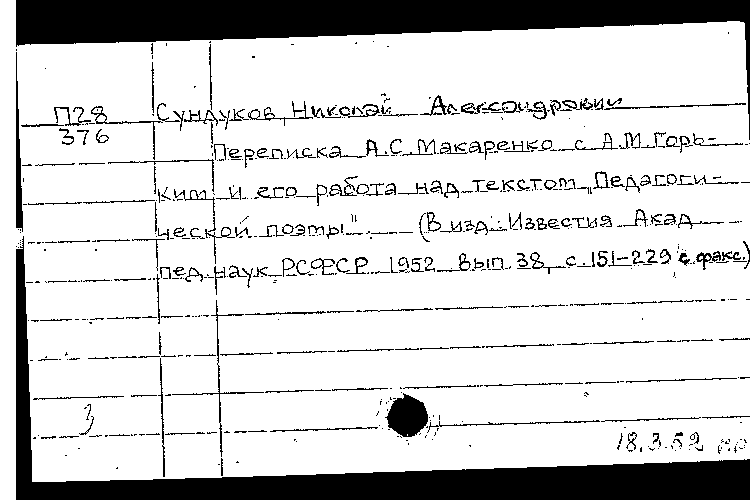 П28 Сундуков, Николай Александрович
376
Переписка А.С. Макаренко с А.М. Горь-
ким и его работа над текстом „Педагоги-
ческой поэмы". (В изд.: Известия Акад
пед. наук РСФСР 1952 вып 38, с. 151-229 с факс.)
3
18.3.52